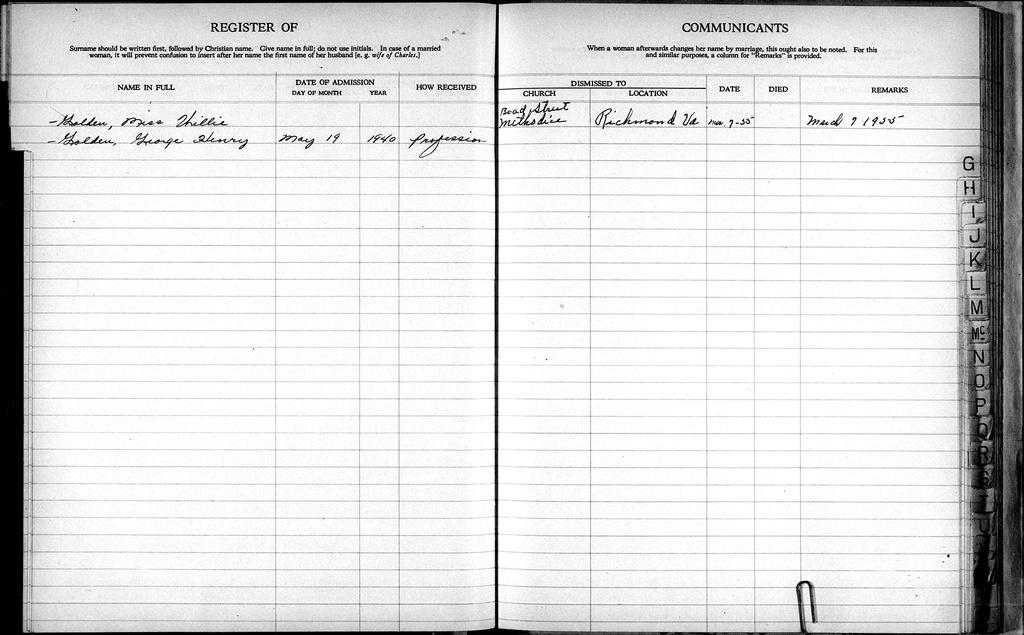 REGISTER OF
Surname should be written first, followed by Christian name. Give name in full; do not use initials. In case of a married
woman, it will prevent confusion to insert after her name the first name of her husband [e. g. wife of Charles.]
NAME IN FULL
DATE OF ADMISSION
DAY OF MONTH YEAR
HOW RECEIVED
- Golden, Miss Willie
- Golden, George Henry May 19 1940 Profession
COMMUNICANTS
When a woman afterwards changes her name by marriage, this ought also to be noted. For this
and similar purposes, a column for "Remarks" is provided.
DISMISSED TO
CHURCH LOCATION
DATE
DIED
REMARKS
Broad Street
Methodist Richmond Va Mar. 7-55 March 7 1955
G
H
I
J
K
L
M
Mc
N
O
P
Q
R
S
T
U